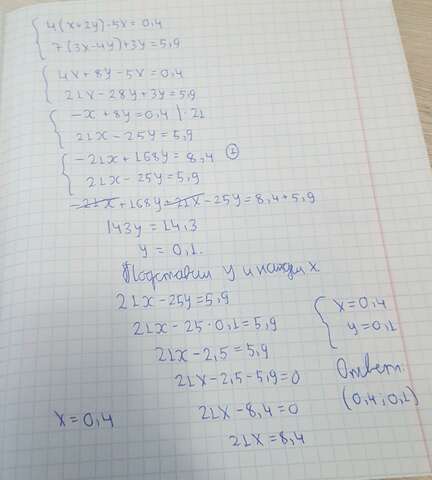 4(x+2y)-5x=0,4
7(3x-4y)+3y=5,9
4x+8y-5x=0,4
21x-28y+3y=5,9
-x+8y=0,4 |·21
21x-25y=5,9
-21x+168y=8,4 (+)
21x-25y=5,9
-21x+168y+21x-25y=8,4+5,9
143y=14,3
y=0,1.
Подставим y и найдём x.
21x-25y=5,9
21x-25·0,1=5,9
21x-2,5=5,9
21x-2,5-5,9=0
21x-8,4=0
21x=8,4
x=0,4
x=0,4
y=0,1
Ответ:
(0,4;0,1)